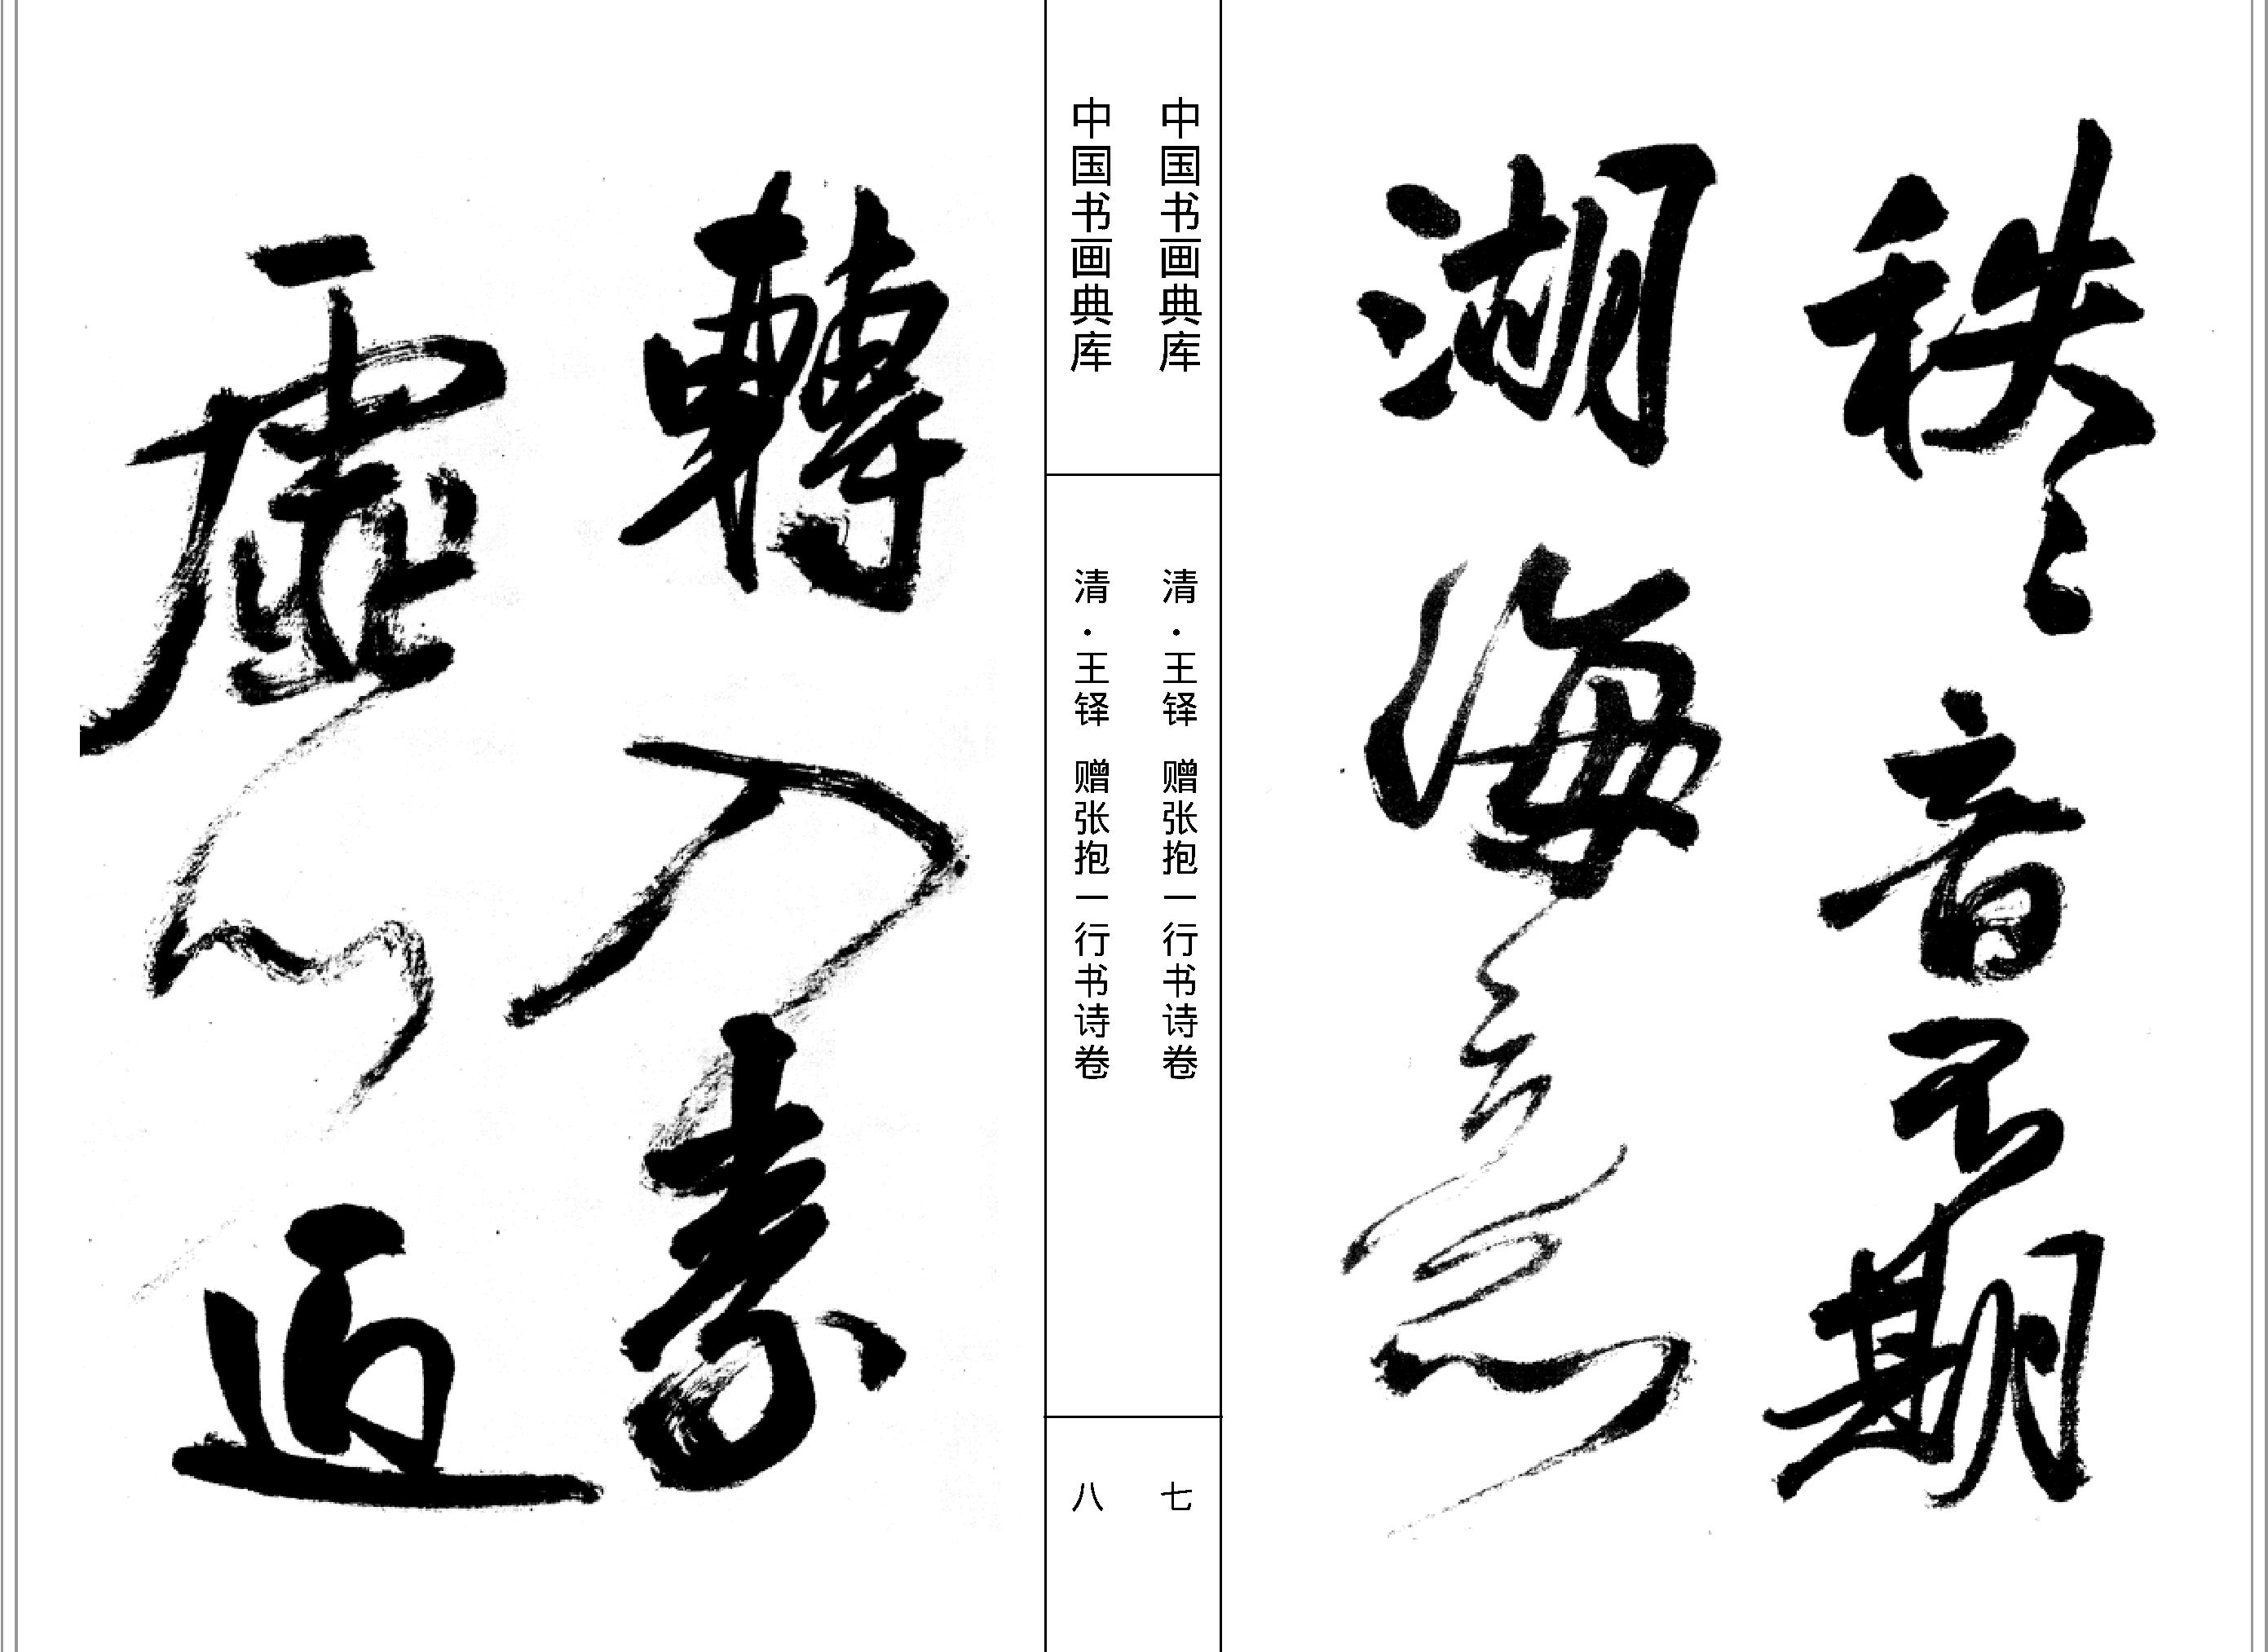 秩〻音不期
湖海意
中国书画典库
清·王铎 赠张抱一行书诗卷
七
中国书画典库
清·王铎 赠张抱一行书诗卷
八
轉入素
虛心近